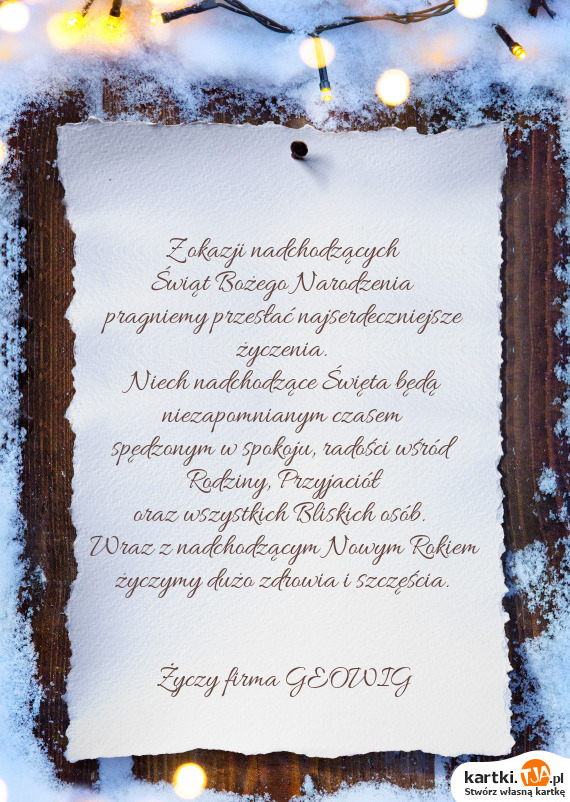 Z okazji nadchodzących
Świąt Bożego Narodzenia
pragniemy przesłać najserdeczniejsze
życzenia.
Niech nadchodzące Święta będą
niezapomnianym czasem
spędzonym w spokoju, radości wśród
Rodziny, Przyjaciół
oraz wszystkich Bliskich osób.
Wraz z nadchodzącym Nowym Rokiem
życzymy dużo zdrowia i szczęścia.
Życzy firma GEOWIG
kartki.TJA.pl
Stwórz własną kartkę